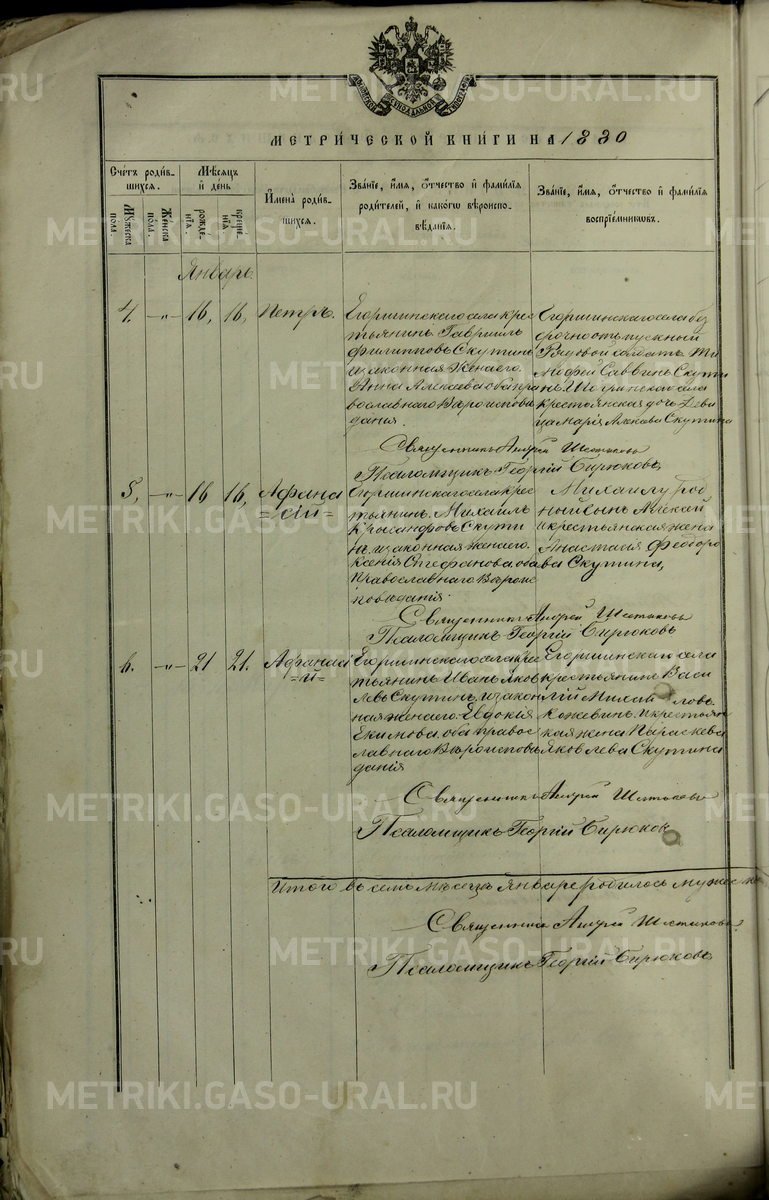 МЕТРИЧЕСКОЙ КНИГИ НА 1880
Счетъ родив-
шихся.
Мужеска
пола.
Женска
пола.
Мѣсяцъ
и день
рожде-
нія.
креще-
нія
Имена родив-
шихся.
Званіе, имя, отчество и фамилія
родителей, и какого вѣроиспо-
вѣданія.
Званіе, имя, отчество и фамилія
воспріемниковъ.
Январь.
4. -"- 16, 16, Петръ.
Егоршинскаго села крес
тьянинъ Гавріилъ
Филипповъ Скутинъ
и законная жена его
Анна Алексѣева оба пра
вославнаго Вѣроисповѣ
данія.
Егоршинскаго села без
срочноотпускный
Рядовой солдатъ Ти
мофей Саввинъ Скути
нъ
крестьянская дочь Деви
ца Марія Скутина
Священникъ Андрей Шестаковъ
Псаломщикъ Георгій Бирюковъ
5, -"- 16 16, Афана
=сій=
Егоршинскаго села крес
тьянинъ Михаилъ
Скути
нъ, и законная жена его
Ксенія Стефанова оба
православнаго Вѣроис
повѣданія.
Михаилу род
ный сынъ Алексѣй
и крестьянская жена
Анастасія Феодоро
ва Скутина,
Священникъ Андрей Шестаковъ
Псаломщикъ Георгій Бирюковъ
6. -"- 21 21. Афанасі
=й=
Егоршинскаго села крес
тьянинъ Иванъ Яков
левъ Скутинъ, и закон
ная жена его Евдокія
Екимова, оба правос
лавнаго Вѣроисповѣ
данія
Егоршинскаго села
крестьянинъ Васи
лій Михай ловъ
Кожевинъ и крестьян
кая жена Параскева
Яковлева Скутина
Священникъ Андрей Шестаковъ
Псаломщикъ Георгій Бирюковъ
Итого въ семъ мѣсяцѣ Январѣ родилось мужес
Священникъ Андрей Шестаковъ.
Псаломщикъ Георгій Бирюковъ
METRIKI.GASO-URAL.RU